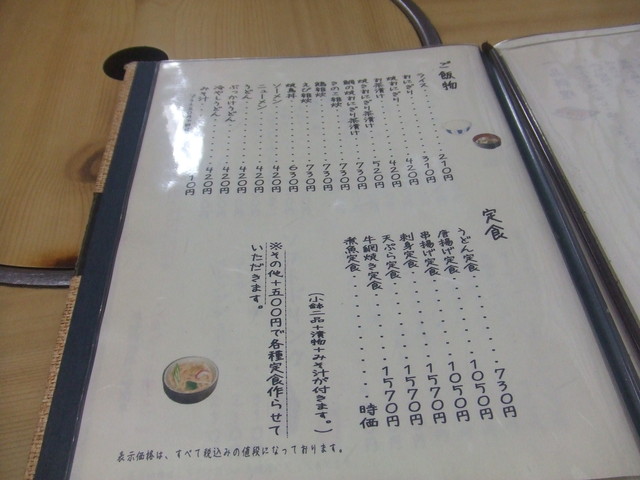 ご飯物
ライス・・・・210円
おにぎり・・・・310円
焼おにぎり・・・・420円
お茶漬け・・・・420円
焼きおにぎり茶漬け・・・・520円
鯛の焼おにぎり茶漬け・・・・730円
きのこ雑炊・・・・730円
鶏雑炊・・・・730円
えび雑炊・・・・730円
焼鳥丼・・・・630円
ソーメン・・・・420円
ニューメン・・・・420円
うどん・・・・420円
ぶっかけうどん・・・・420円
冷やしうどん・・・・420円
みそ汁・・・・10円
定食
うどん定食・・・・730円
唐揚げ定食・・・・1050円
串揚げ定食・・・・1050円
刺身定食・・・・1570円
天ぷら定食・・・・1570円
牛鍋焼き定食・・・・1570円
煮魚定食・・・・時価
（小鉢二品+漬物+みそ汁が付きます。）
※その他+五00円で各種定食作らせて
いただきます。
表示価格は、すべて税込みの値段になっております。